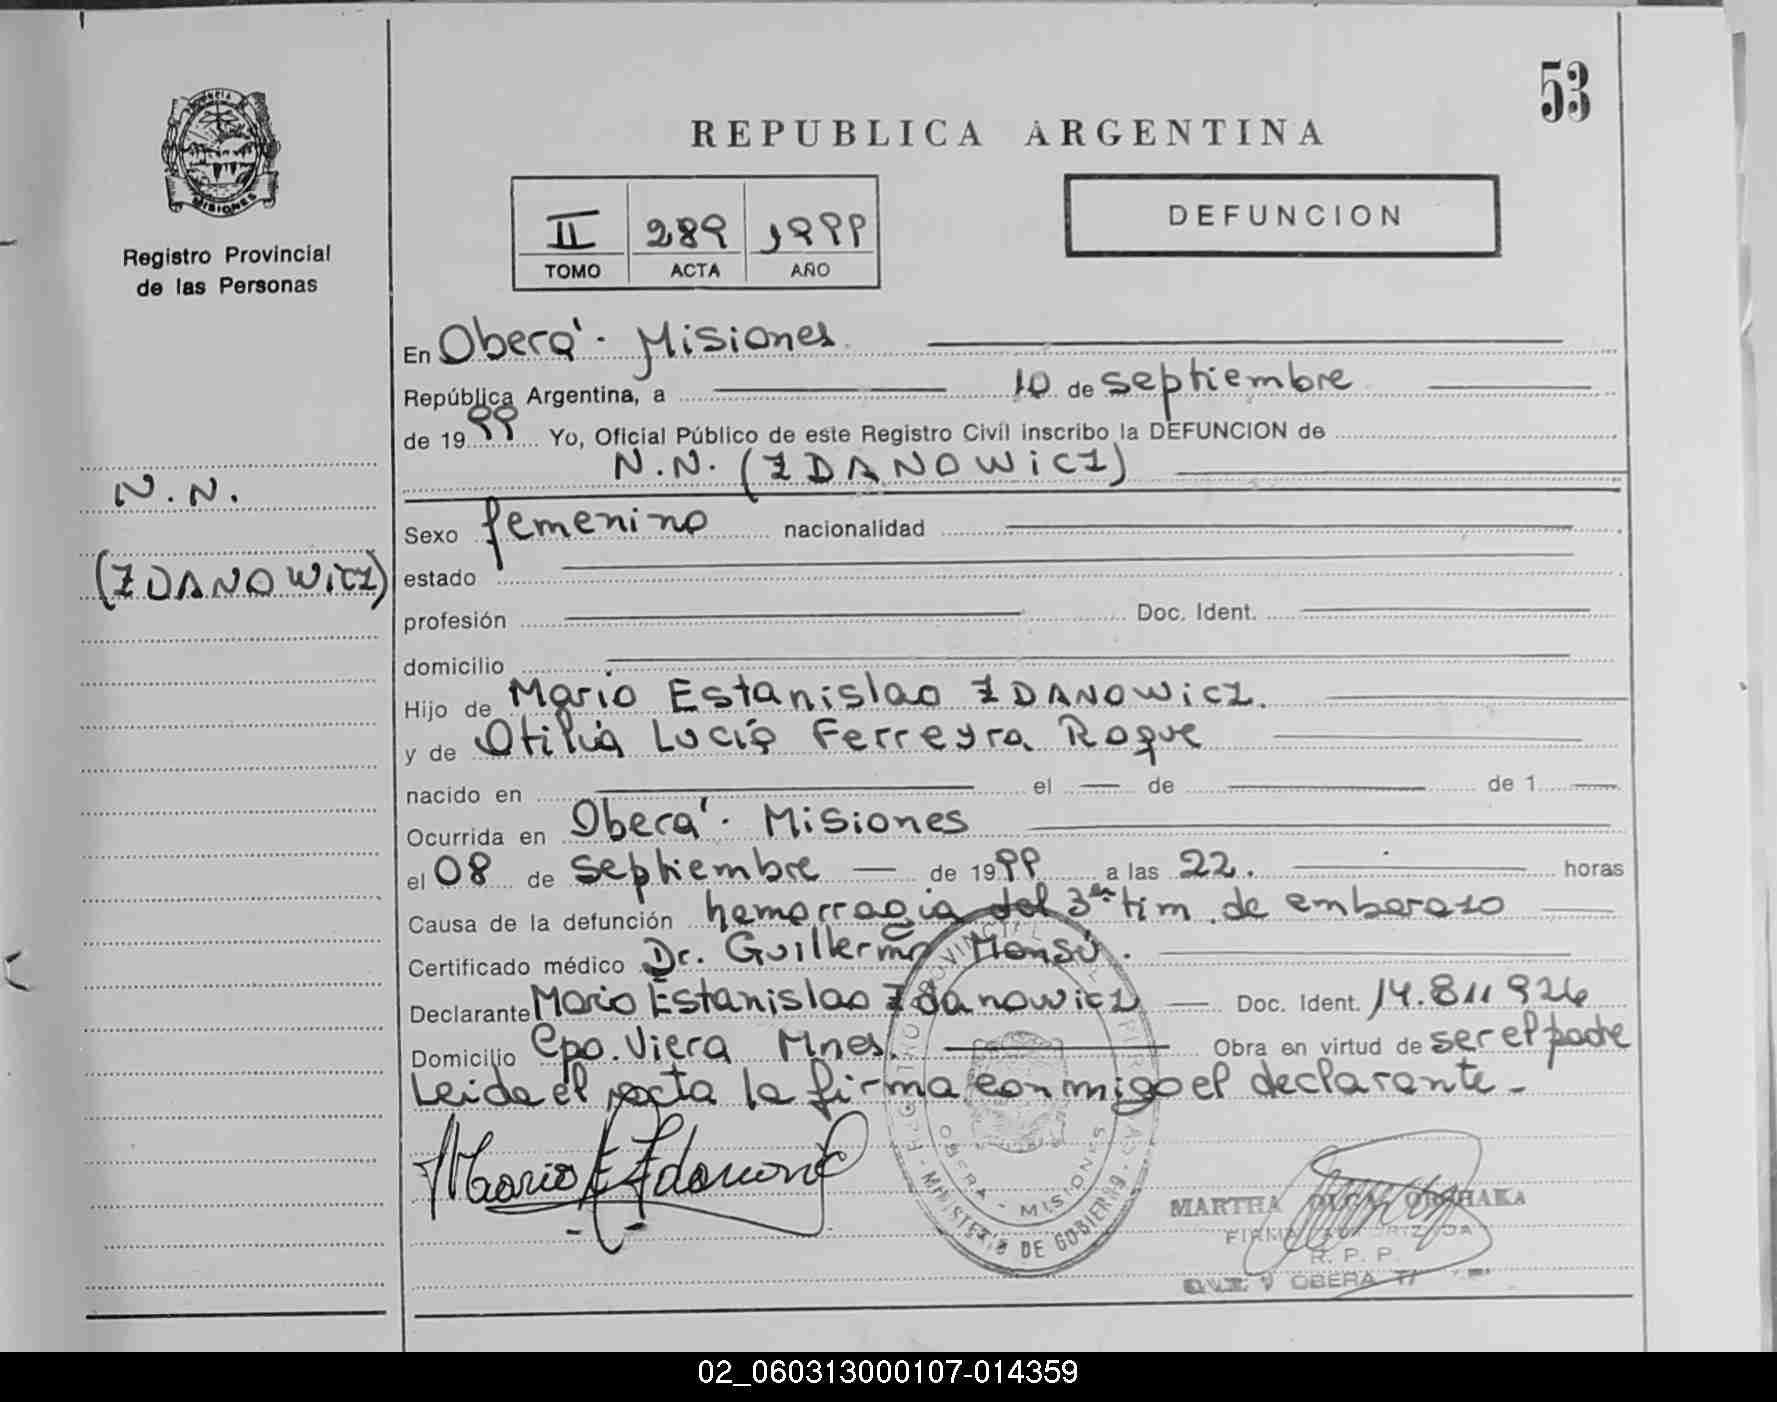 53
REPUBLICA ARGENTINA
PROVINCIA DE
MISIONES
Registro Provincial
de las Personas
II 289 1999
TOMO ACTA AÑO
DEFUNCION
En Oberá - Misiones
República Argentina, a 10 de septiembre
de 1999 Yo, Oficial Público de este Registro Civil inscribo la DEFUNCION de
N.N. (ZDANOWicZ)
N.N.
(ZDANOWicZ)
Sexo femenino nacionalidad
estado
profesión Doc. Ident.
domicilio
Hijo de Mario Estanislao ZDANOWicZ.
y de Otilia Lucía Ferreyra Roque
nacido en el de de 1
Ocurrida en Oberá - Misiones
el 08 de septiembre de 1999 a las 22. horas
Causa de la defunción hemorragia del 3er trim de embarazo
Certificado médico Dr. Guillermo Monsú.
Declarante Mario Estanislao Zdanowicz Doc. Ident. 14.811926
Domicilio Cpo. Viera Mnes. Obra en virtud de ser el padre
Leida el acta la firma conmigo el declarante -
Mario E Zdanowicz
REGISTRO PROVINCIAL DE LAS PERSONAS
OBERA - MISIONES
MINISTERIO DE GOBIERNO
MARTHA OLGA
FIRMA AUTORIZADA
R. P. P.
OBERA
02_060313000107-014359